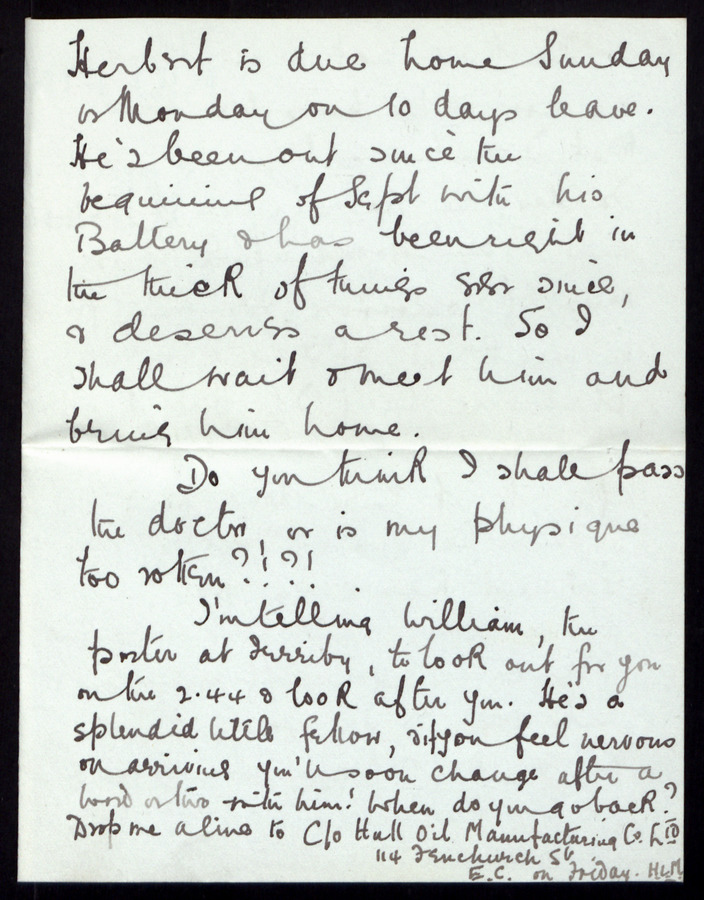 Herbert is due home Sunday
or Monday on 10 days leave.
He's been out since the
beginning of Sept with his
Battery & has been right in
the thick of things ever since,
& deserves a rest. So I
shall wait & meet him and
bring him home.
Do you think I shall pass
the doctor, or is my physique
too rotten?!?!
I'm telling William, the
porter at Ferriby, to look out for you
on the 2.44 & look after you. He's a
splendid little fellow, & if you feel nervous
on arriving you'll soon change after a
word or two with him! When do you go back?
Drop me a line to C/o Hull Oil Manufacturing Co. LTD
114 Fenchurch St.
E.C. on Friday.